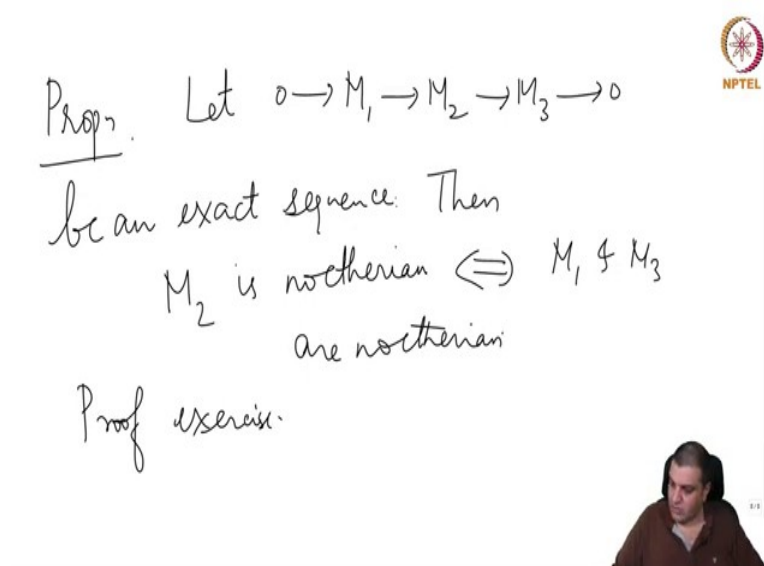 Propn. Let 0→M₁→M₂→M₃→0
NPTEL
be an exact sequence. Then
M₂ is noetherian ⇔ M₁ & M₃
are noetherian
Proof exercise.